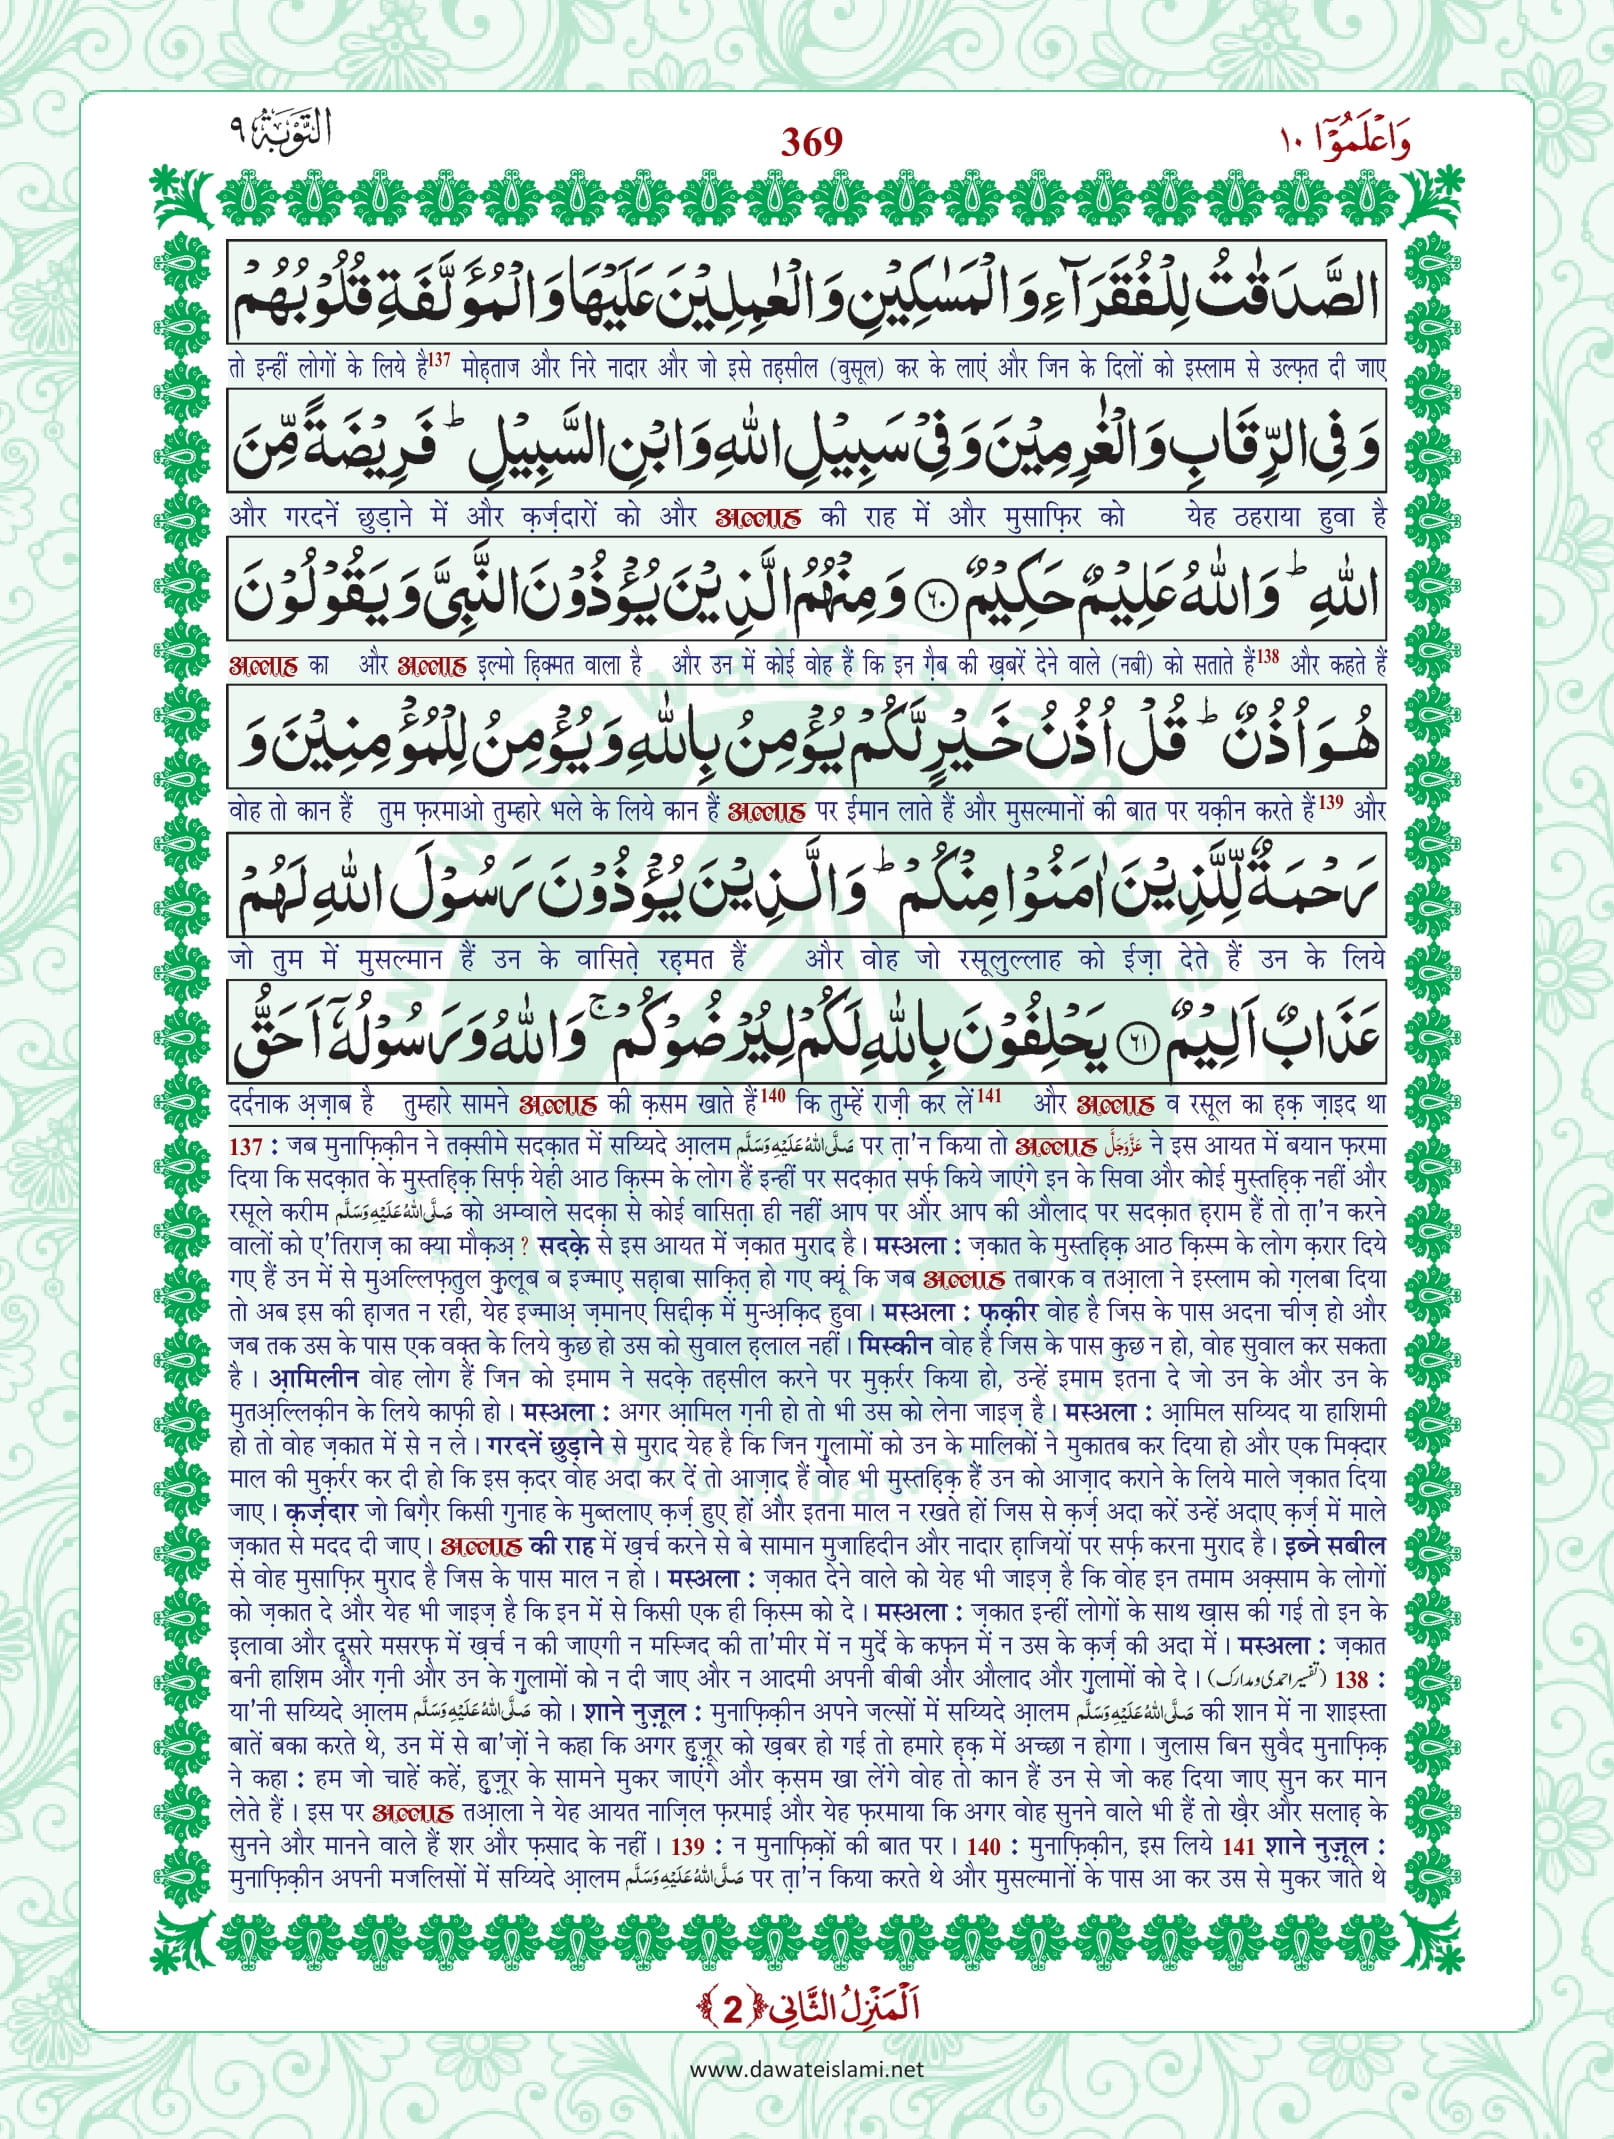 وَاعْلَمُوْۤا ١٠
369
التَّوْبَة ٩
الصَّدَقٰتُ لِلْفُقَرَآءِ وَ الْمَسٰكِیْنِ وَ الْعٰمِلِیْنَ عَلَیْهَا وَ الْمُؤَلَّفَةِ قُلُوْبُهُمْ
तो इन्हीं लोगों के लिये है137 मोह़ताज और निरे नादार और जो इसे तह़सील (वुसूल) कर के लाएं और जिन के दिलों को इस्लाम से उल्फ़त दी जाए
وَ فِی الرِّقَابِ وَ الْغٰرِمِیْنَ وَ فِیْ سَبِیْلِ اللّٰهِ وَ ابْنِ السَّبِیْلِؕ فَرِیْضَةً مِّنَ
और गरदनें छुड़ाने में और क़र्ज़दारों को और अल्लाह की राह में और मुसाफ़िर को येह ठहराया हुवा है
اللّٰهِؕ وَ اللّٰهُ عَلِیْمٌ حَكِیْمٌ ﴿٦٠﴾ وَ مِنْهُمُ الَّذِیْنَ یُؤْذُوْنَ النَّبِیَّ وَ یَقُوْلُوْنَ
अल्लाह का और अल्लाह इल्मो ह़िक्मत वाला है और उन में कोई वोह हैं कि इन ग़ैब की ख़बरें देने वाले (नबी) को सताते हैं138 और कहते हैं
هُوَ اُذُنٌؕ قُلْ اُذُنُ خَیْرٍ لَّكُمْ یُؤْمِنُ بِاللّٰهِ وَ یُؤْمِنُ لِلْمُؤْمِنِیْنَ وَ
वोह तो कान हैं तुम फ़रमाओ तुम्हारे भले के लिये कान हैं अल्लाह पर ईमान लाते हैं और मुसल्मानों की बात पर यक़ीन करते हैं139 और
رَحْمَةٌ لِّلَّذِیْنَ اٰمَنُوْا مِنْكُمْؕ وَ الَّذِیْنَ یُؤْذُوْنَ رَسُوْلَ اللّٰهِ لَهُمْ
जो तुम में मुसल्मान हैं उन के वासित़े रह़मत हैं और वोह जो रसूलुल्लाह को ईज़ा देते हैं उन के लिये
عَذَابٌ اَلِیْمٌ ﴿٦١﴾ یَحْلِفُوْنَ بِاللّٰهِ لَكُمْ لِیُرْضُوْكُمْۚ وَ اللّٰهُ وَ رَسُوْلُهٗۤ اَحَقُّ
दर्दनाक अ़ज़ाब है तुम्हारे सामने अल्लाह की क़सम खाते हैं140 कि तुम्हें राज़ी कर लें141 और अल्लाह व रसूल का ह़क़ ज़ाइद था
137 : जब मुनाफ़िक़ीन ने तक़्सीमे सदक़ात में सय्यिदे आ़लम صَلَّى اللّٰهُ عَلَيْهِ وَسَلَّم पर त़ा'न किया तो अल्लाह عَزَّوَجَلَّ ने इस आयत में बयान फ़रमा
दिया कि सदक़ात के मुस्तह़िक़ सिर्फ़ येही आठ क़िस्म के लोग हैं इन्हीं पर सदक़ात सर्फ़ किये जाएंगे इन के सिवा और कोई मुस्तह़िक़ नहीं और
रसूले करीम صَلَّى اللّٰهُ عَلَيْهِ وَسَلَّم को अम्वाले सदक़ा से कोई वासित़ा ही नहीं आप पर और आप की औलाद पर सदक़ात ह़राम हैं तो त़ा'न करने
वालों को ए'तिराज़ का क्या मौक़अ़ ? सदक़े से इस आयत में ज़कात मुराद है। मस्अला : ज़कात के मुस्तह़िक़ आठ क़िस्म के लोग क़रार दिये
गए हैं उन में से मुअल्लिफ़तुल क़ुलूब ब इज्माए़ सह़ाबा साक़ित़ हो गए क्यूं कि जब अल्लाह तबारक व तआ़ला ने इस्लाम को ग़लबा दिया
तो अब इस की ह़ाजत न रही, येह इज्माअ़ ज़मानए सिद्दीक़ में मुन्अ़क़िद हुवा। मस्अला : फ़क़ीर वोह है जिस के पास अदना चीज़ हो और
जब तक उस के पास एक वक़्त के लिये कुछ हो उस को सुवाल ह़लाल नहीं। मिस्कीन वोह है जिस के पास कुछ न हो, वोह सुवाल कर सकता
है। आ़मिलीन वोह लोग हैं जिन को इमाम ने सदक़े तह़सील करने पर मुक़र्रर किया हो, उन्हें इमाम इतना दे जो उन के और उन के
मुतअ़ल्लिक़ीन के लिये काफ़ी हो। मस्अला : अगर आ़मिल ग़नी हो तो भी उस को लेना जाइज़ है। मस्अला : आ़मिल सय्यिद या हाशिमी
हो तो वोह ज़कात में से न ले। गरदनें छुड़ाने से मुराद येह है कि जिन ग़ुलामों को उन के मालिकों ने मुकातब कर दिया हो और एक मिक़्दार
माल की मुक़र्रर कर दी हो कि इस क़दर वोह अदा कर दें तो आज़ाद हैं वोह भी मुस्तह़िक़ हैं उन को आज़ाद कराने के लिये माले ज़कात दिया
जाए। क़र्ज़दार जो बिग़ैर किसी गुनाह के मुब्तलाए क़र्ज़ हुए हों और इतना माल न रखते हों जिस से क़र्ज़ अदा करें उन्हें अदाए क़र्ज़ में माले
ज़कात से मदद दी जाए। अल्लाह की राह में ख़र्च करने से बे सामान मुजाहिदीन और नादार ह़ाजियों पर सर्फ़ करना मुराद है। इब्ने सबील
से वोह मुसाफ़िर मुराद है जिस के पास माल न हो। मस्अला : ज़कात देने वाले को येह भी जाइज़ है कि वोह इन तमाम अक़्साम के लोगों
को ज़कात दे और येह भी जाइज़ है कि इन में से किसी एक ही क़िस्म को दे। मस्अला : ज़कात इन्हीं लोगों के साथ ख़ास की गई तो इन के
इ़लावा और दूसरे मसरफ़ में ख़र्च न की जाएगी न मस्जिद की ता'मीर में न मुर्दे के कफ़न में न उस के क़र्ज़ की अदा में। मस्अला : ज़कात
बनी हाशिम और ग़नी और उन के ग़ुलामों को न दी जाए और न आदमी अपनी बीबी और औलाद और ग़ुलामों को दे। (تفسیر احمدی و مدارک) 138 :
या'नी सय्यिदे आ़लम صَلَّى اللّٰهُ عَلَيْهِ وَسَلَّم को। शाने नुज़ूल : मुनाफ़िक़ीन अपने जल्सों में सय्यिदे आ़लम صَلَّى اللّٰهُ عَلَيْهِ وَسَلَّم की शान में ना शाइस्ता
बातें बका करते थे, उन में से बा'ज़ों ने कहा कि अगर हुज़ूर को ख़बर हो गई तो हमारे ह़क़ में अच्छा न होगा। जुलास बिन सुवैद मुनाफ़िक़
ने कहा : हम जो चाहें कहें, हुज़ूर के सामने मुकर जाएंगे और क़सम खा लेंगे वोह तो कान हैं उन से जो कह दिया जाए सुन कर मान
लेते हैं। इस पर अल्लाह तआ़ला ने येह आयत नाज़िल फ़रमाई और येह फ़रमाया कि अगर वोह सुनने वाले भी हैं तो ख़ैर और सलाह़ के
सुनने और मानने वाले हैं शर और फ़साद के नहीं। 139 : न मुनाफ़िक़ों की बात पर। 140 : मुनाफ़िक़ीन, इस लिये 141 शाने नुज़ूल :
मुनाफ़िक़ीन अपनी मजलिसों में सय्यिदे आ़लम صَلَّى اللّٰهُ عَلَيْهِ وَسَلَّم पर त़ा'न किया करते थे और मुसल्मानों के पास आ कर उस से मुकर जाते थे
اَلْمَنْزِلُ الثَّانِی ﴿2﴾
www.dawateislami.net